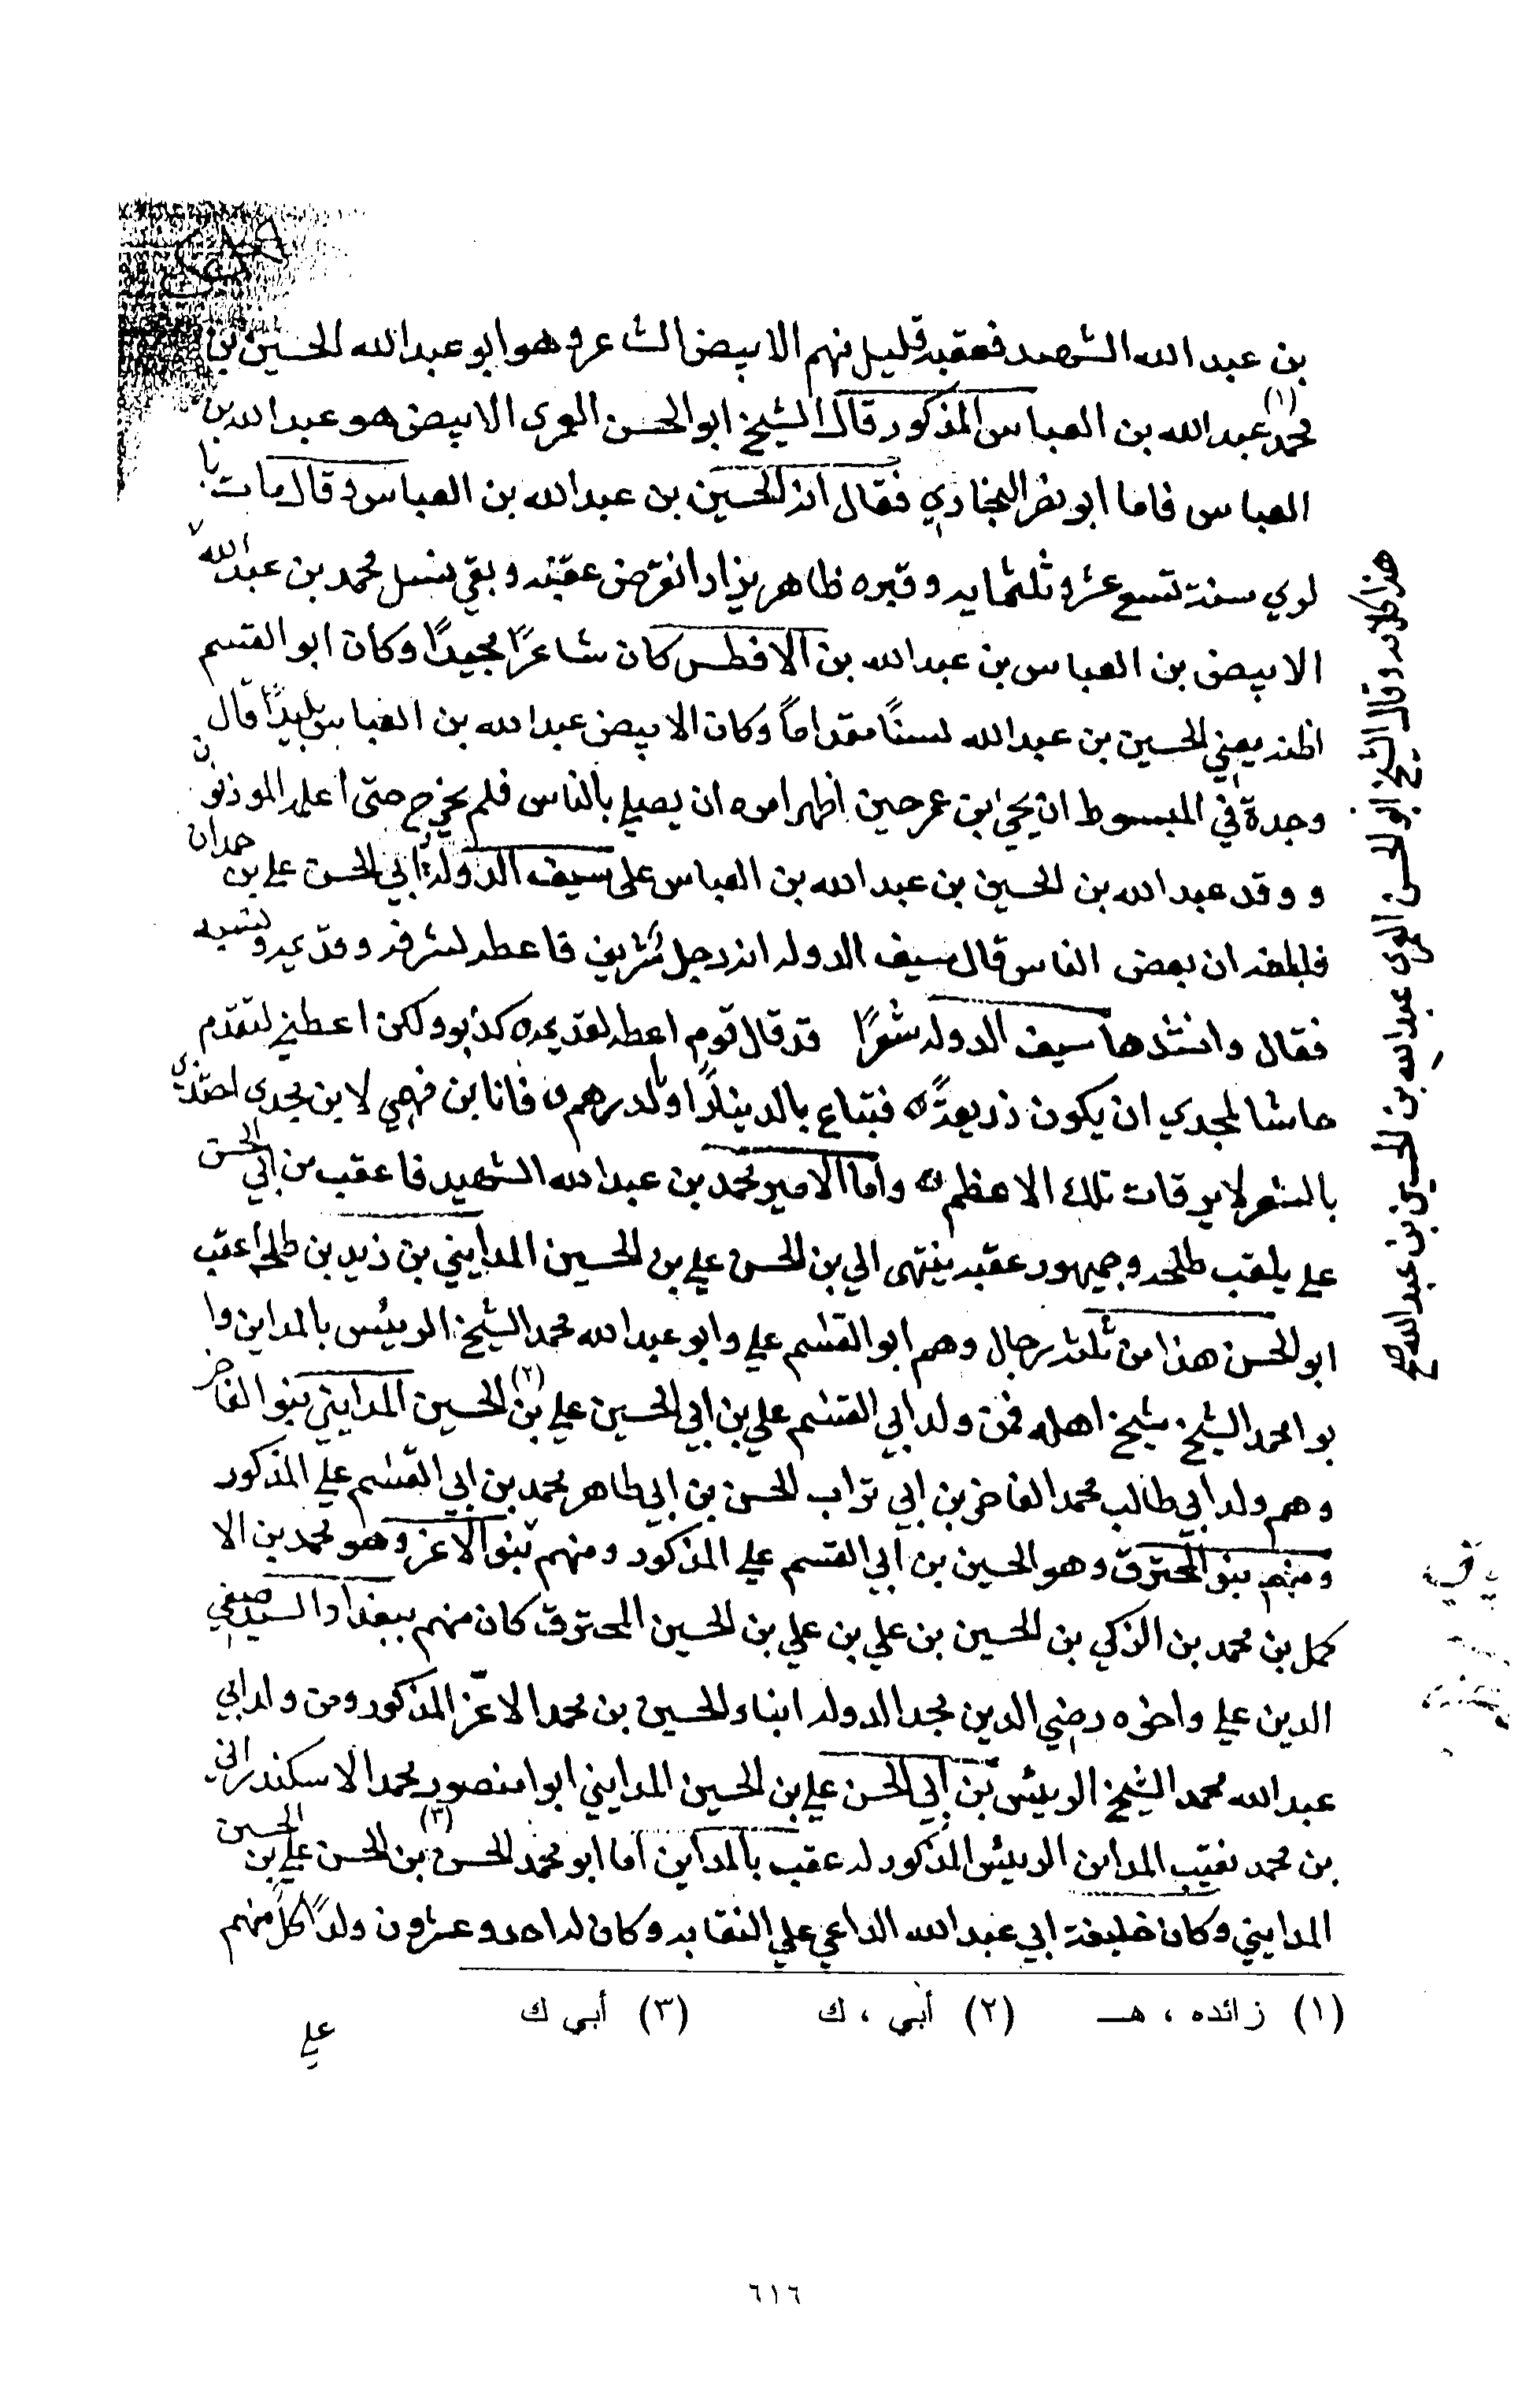 بن عبد الله الشهيد فعقبه قليل منهم الابيض الشاعر وهو ابو عبد الله الحسين بن
محمد (١) عبد الله بن العباس المذكور قال الشيخ ابو الحسن العمرى الابيض هو عبد الله بن
العباس فاما ابو نصر البخاري فقال انه الحسين بن عبد الله بن العباس وقال مات با
لري سنة تسع عشر وثلثمايه وقبره ظاهر يزار انقرض عقبه وبقي نسل محمد بن عبد الله
الابيض بن العباس بن عبد الله بن الافطس كان شاعرًا مجيدًا وكان ابو القسم
اظنه يعني الحسين بن عبد الله لسنًا مقدامًا وكان الابيض عبد الله بن العباس بليدًا قال
وجدة في المبسوط ان يحيى ابن عمر حين اظهر امره ان يصلي بالناس فلم يخرج حتى اعلمه الموذنون
و وفد عبد الله بن الحسين بن عبد الله بن العباس على سيف الدوله ابي الحسن علي بن حمدان
فبلغه ان بعض الناس قال سيف الدوله انه رجل شريف فاعطه لشرفه وقديمه ونسبه
فقال وانشدها سيف الدوله شعرًا قد قال قوم اعطه لقديمه كذبو ولكن اعطني لتقدم
حاشا لمجدي ان يكون ذريعةً فبتاع بالدينار او لدرهم فانا ابن فهمي لا ابن مجدى احتذي
بالشعر لا برفات تلك الاعظم واما الامير محمد بن عبد الله الشهيد فاعقب من ابي الحسن
علي يلقب طلحه وجمهور عقبه ينتهى الي بن الحسن علي بن الحسين المدايني بن زيد بن طلحه اعقب
ابو الحسن هذا من ثلثه رجال وهم ابو القسم علي وابو عبد الله محمد الشيخ الرييس بالمداين وا
بو امحمد الشيخ شيخ اهله فمن ولد ابي القسم علي بن ابي الحسين علي بن (٢) الحسين المدايني بنو الفاخر
وهم ولد ابي طالب محمد الفاخر بن ابي تراب الحسن بن ابي طاهر محمد بن ابي القسم علي المذكور
ومنهم بنو المحترق وهو الحسين بن ابي القسم علي المذكور ومنهم بنو الاعز وهو محمد بن الا
كمل بن محمد بن الزكي بن الحسين بن علي بن علي بن الحسين المحترق كان منهم ببغداد السيد صفي
الدين علي واخوه رضي الدين مجد الدوله ابناء الحسين بن محمد الاعز المذكور ومن ولد ابي
عبد الله محمد الشيخ الرييس بن ابي الحسن علي بن الحسين المدايني ابوا منصور محمد الاسكندراني
بن محمد نقيب المداين الرييس المذكور له عقب بالمداين اما ابو محمد الحسن بن (٣) الحسن علي بن الحسين
المدايني وكان خليفة ابي عبد الله الداعي علي النقابه وكان له احد وعشرون ولدًا كل منهم
علي
هذا كلامه وقال الشيخ ابو الحسن العمرى عبد الله بن الحسين بن عبد الله صح
(١) زائده ، هـ (٢) أبي ، ك (٣) أبي ك
٦١٦